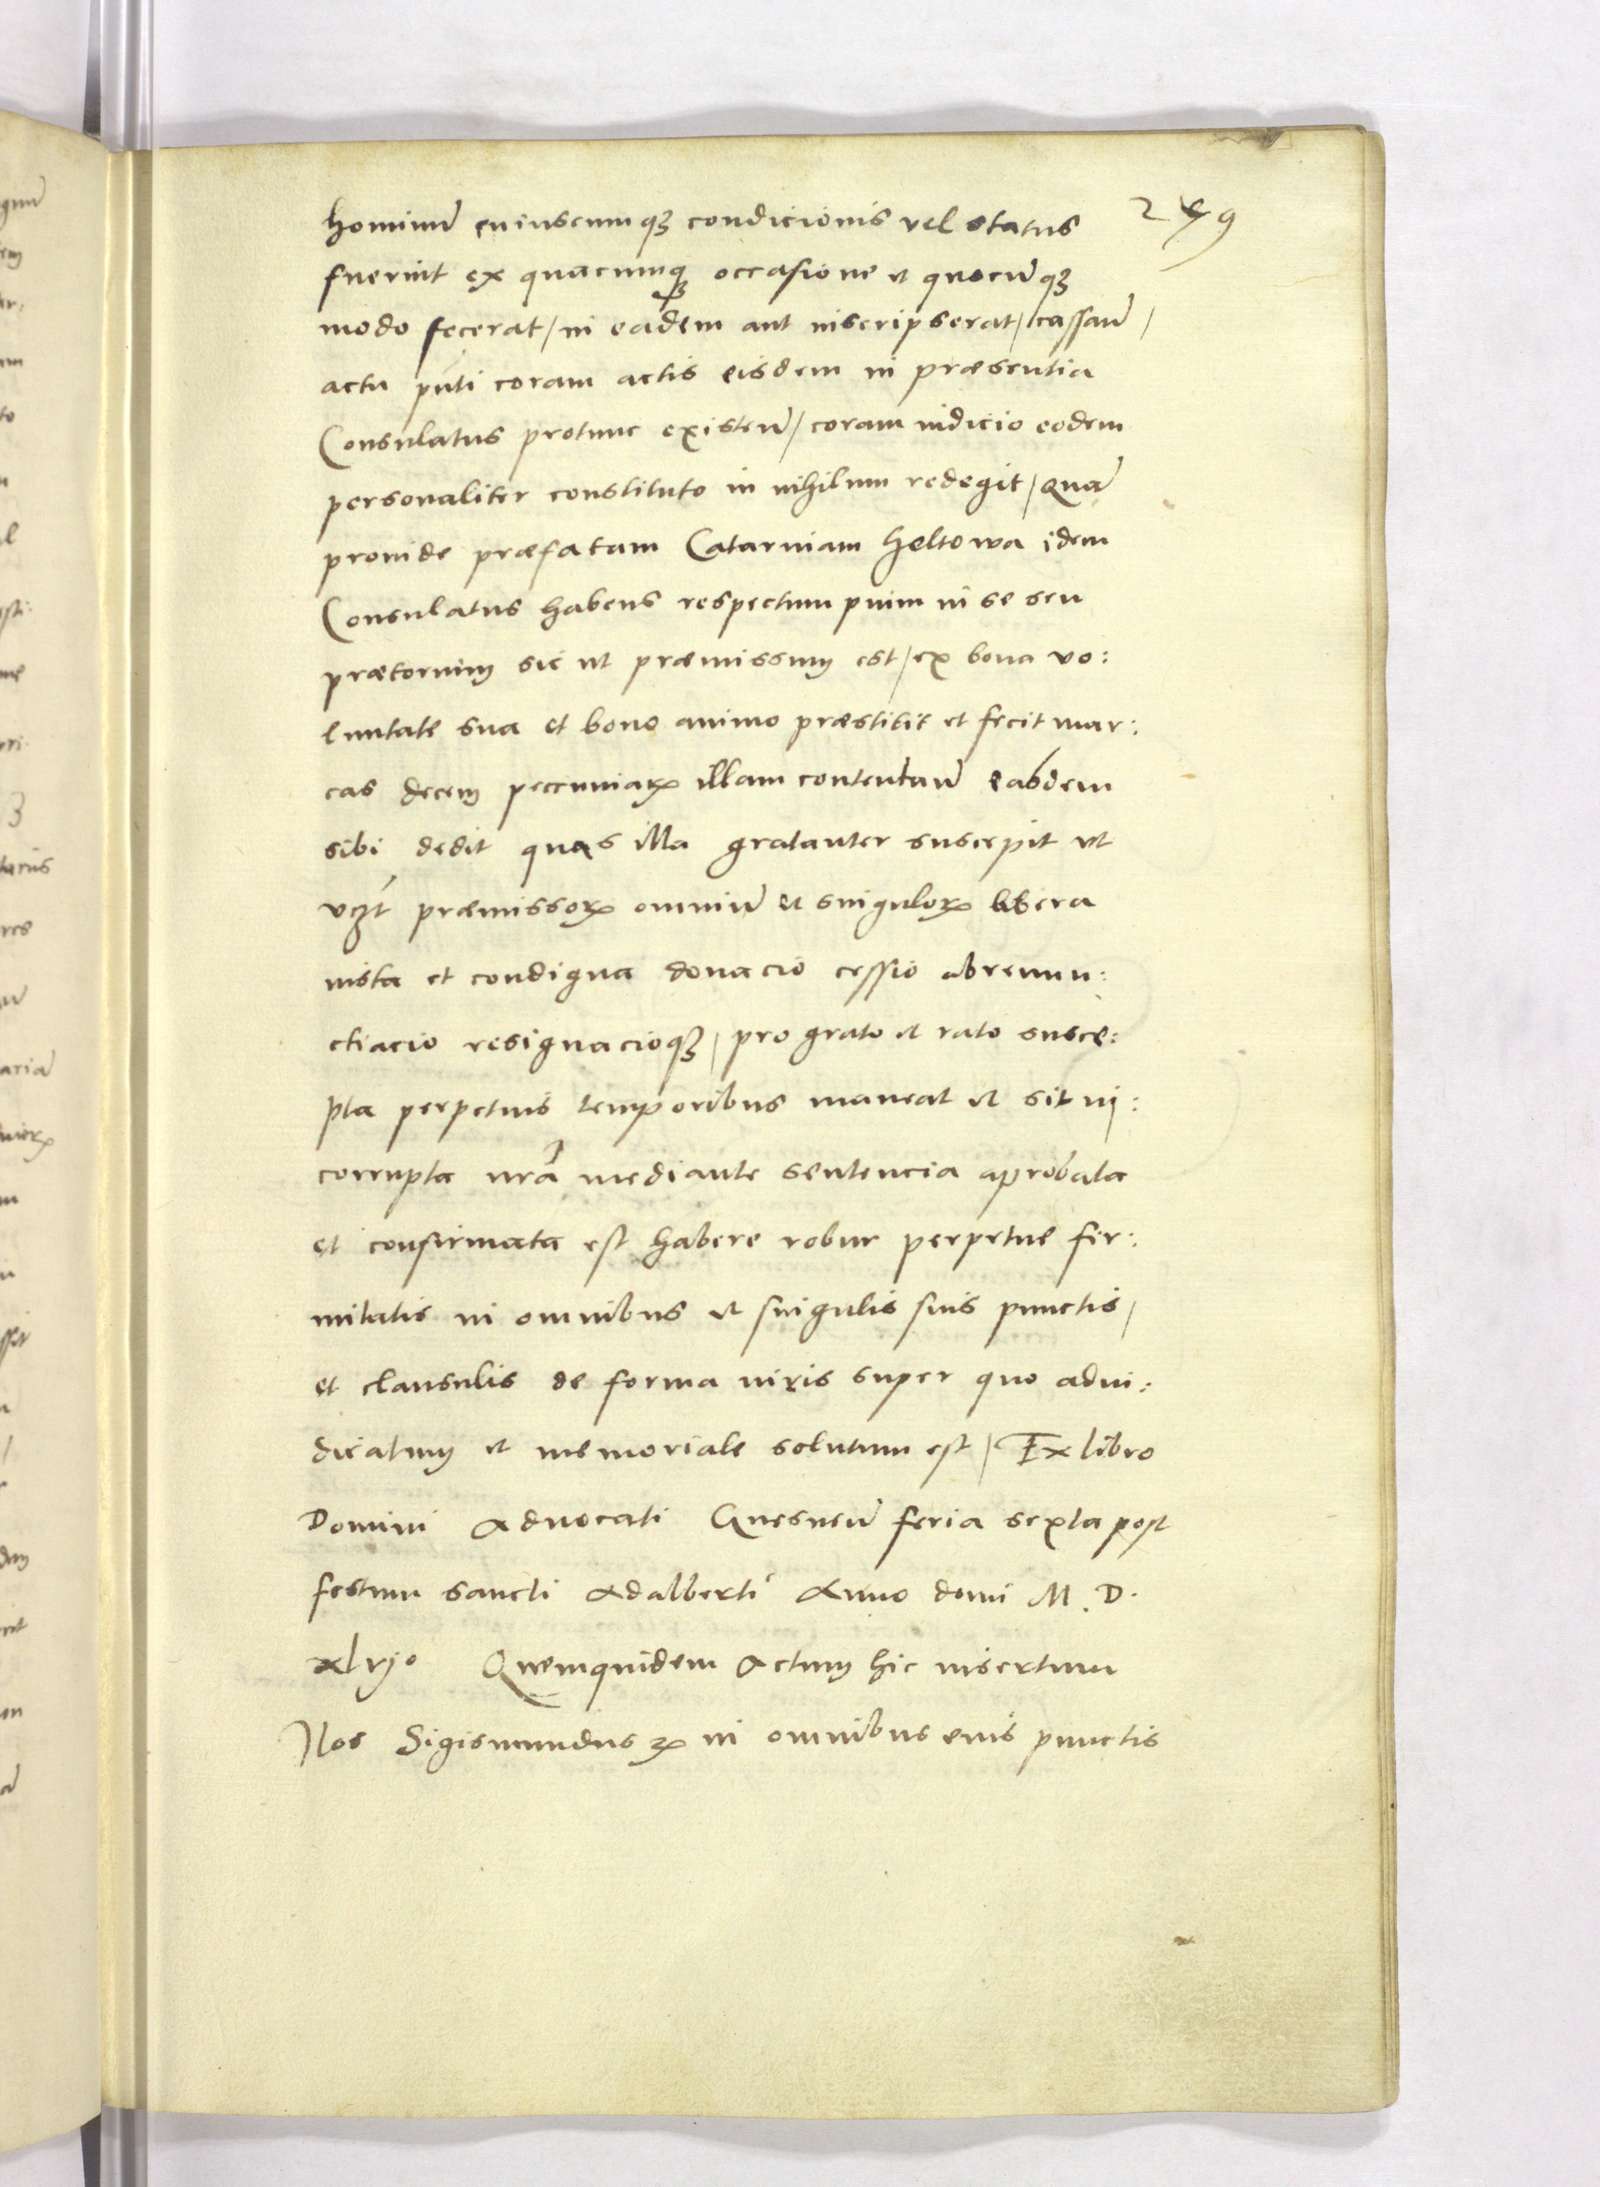 249
hominū cuiuscumqꝫ condicionis vel status
fuerint ex quacumqꝫ occasione et quocūqꝫ
modo fecerat / in eadem aut inscripserat / cassaū /
actu pñti coram actis eisdem in præsentia
Consulatus protunc existeñ / coram iudicio eodem
personaliter constituto in nihilum redegit / Quā
provide præfatam Catarinam Heltowa idem
Consulatus habens respectum puim in se seu
prætorium sic ut præmissum est / ex bona vo:
luntate sua et bono animo præstitit et fecit mar:
cas decem peccuniarꝝ illam contentaū easdem
sibi dedit quas illa gratanter suscepit ut
vꝫt præmissorꝝ omniū et singulorꝝ libera
iusta et condigna donacio cessio abrenun:
ctiacio resignacioqꝫ / pro grato et rato susce:
pta perpetuis temporibus maneat et sit in:
corrupta nrā mediante sentencia aprobata
et confirmata est habere robur perpetue fir:
mitatis in omnibus et singulis suis punctis /
et clausulis de forma iuris super quo adiu:
dicatum et memoriale solutum est / Ex libro
Domini Advocati Gnesneñ feria sexta post
festum sancti Adalberti Anno domi M. D.
xlvjo Quemquidem Actum hic insertum
Nos Sigismundus ꝝ in omnibus eius punctis